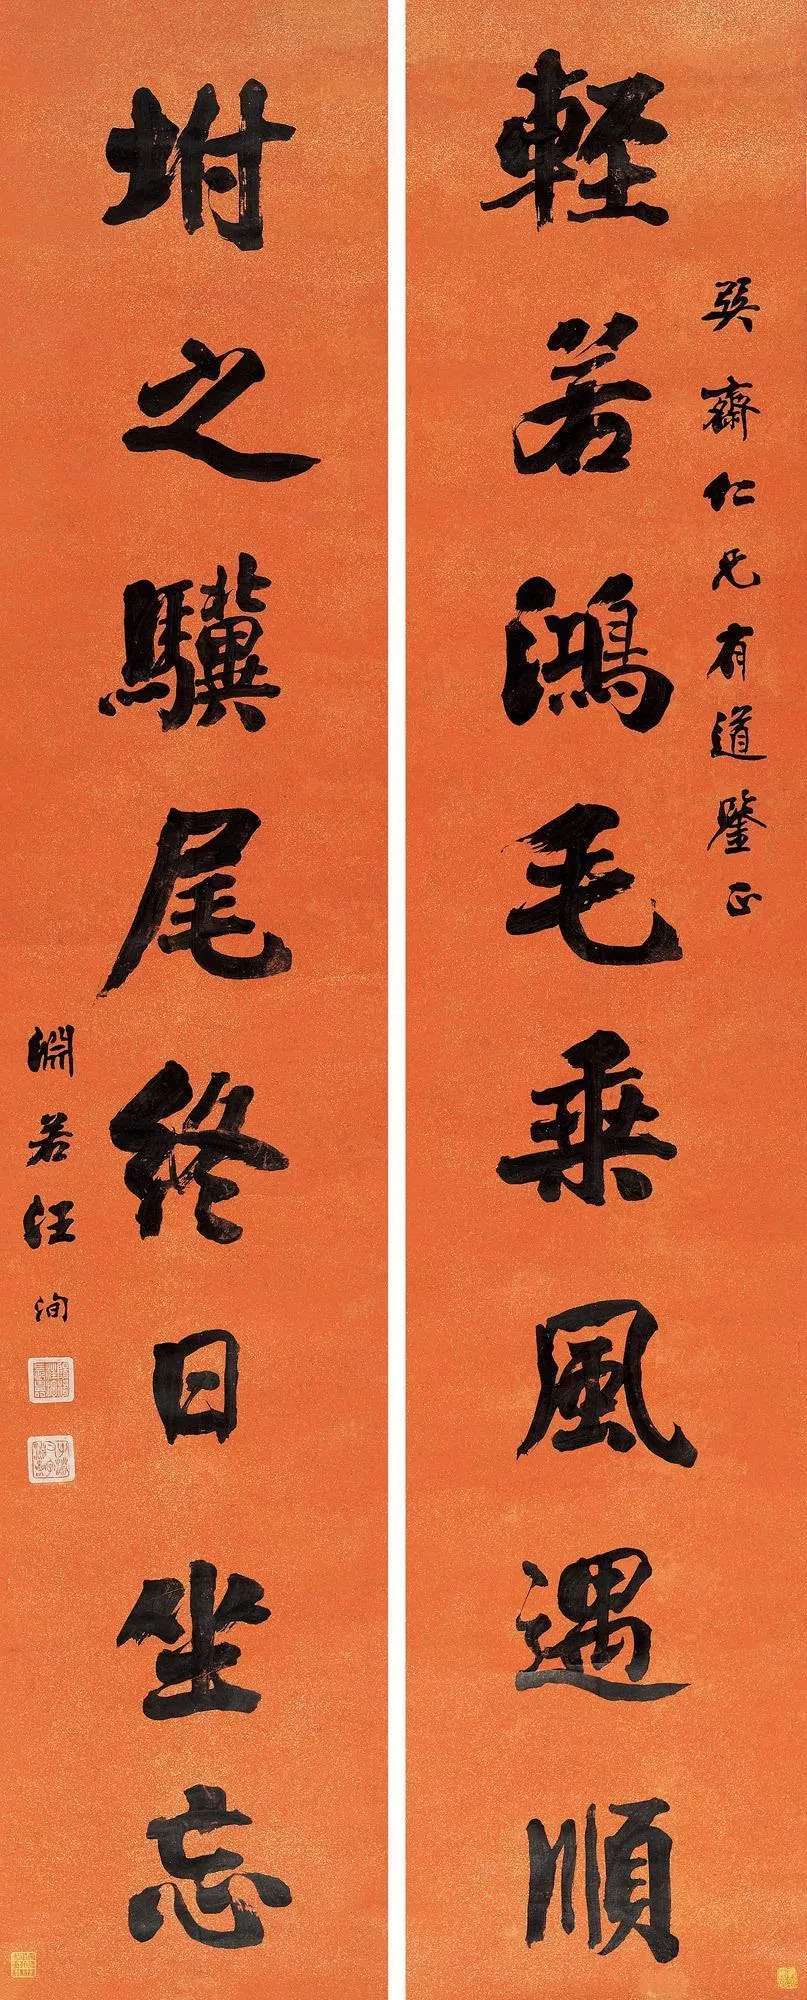 巽齋仁兄有道鑒正
輕若鴻毛乘風遇順
坿之驥尾終日坐忘
淵若汪洵